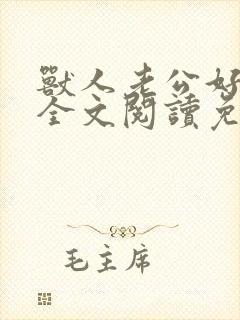 獸人老公好
全文閱讀免
毛主席